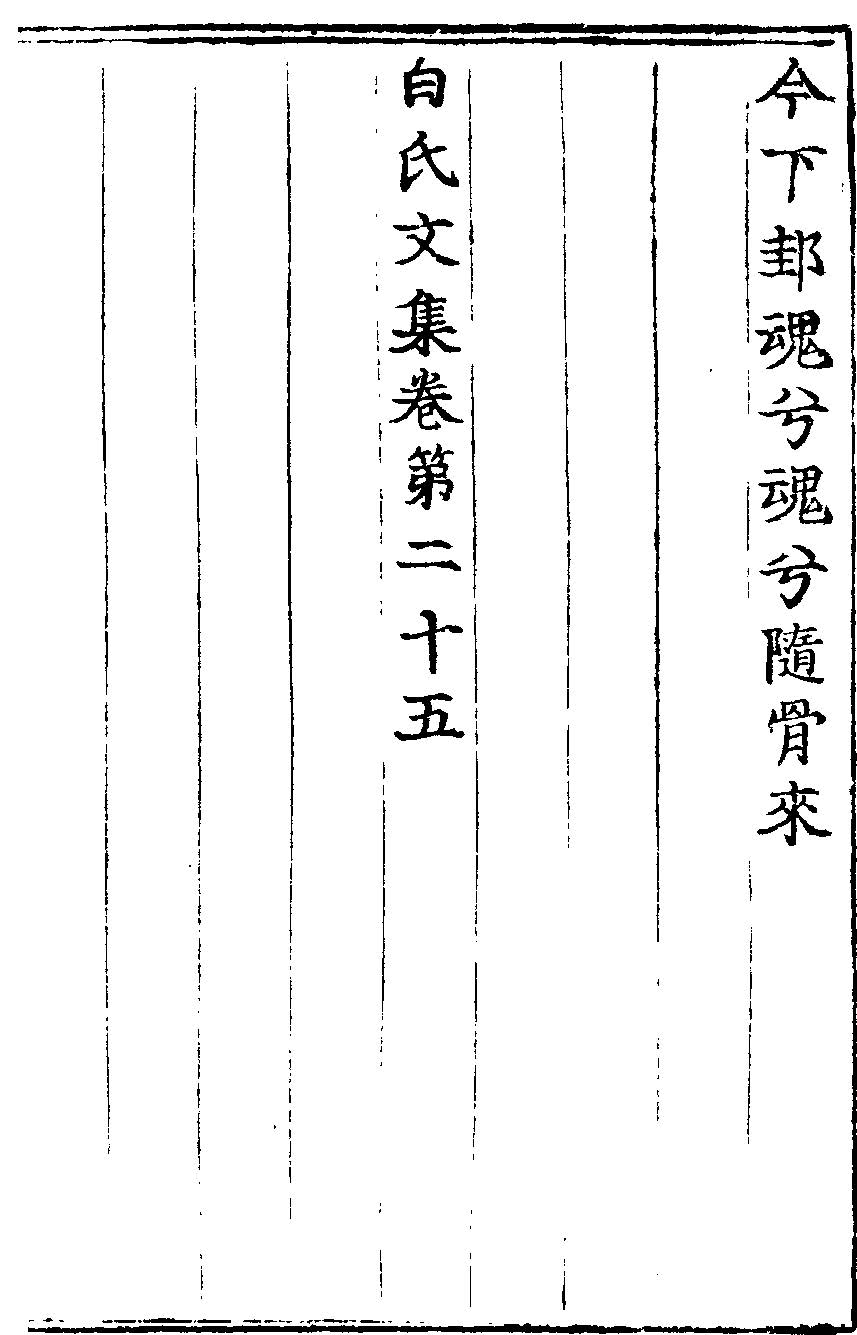 今下邽魂兮魂兮隨骨來
白氏文集卷第二十五